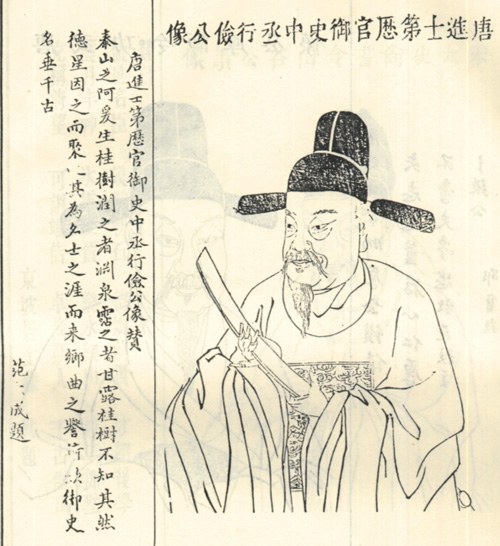 唐進士第歷官御史中丞行儉公像
唐進士第歷官御史中丞行儉公像贊
泰山之阿爰生桂樹潤之者淵泉霑之者甘露桂樹不知其然
德星因之而聚其為士之涯而来鄉曲之譽行欤御史
名垂千古
范成題